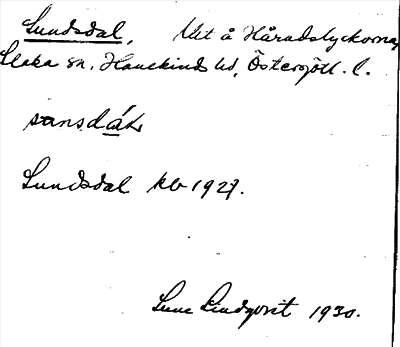 Lundsdal, Utt å Häradslyckorna,
Slaka sn, Hanekinds hd, Östergötl. l.
sansdál
Lundsdal kb 1927.
Sune Lindqvist 1930.